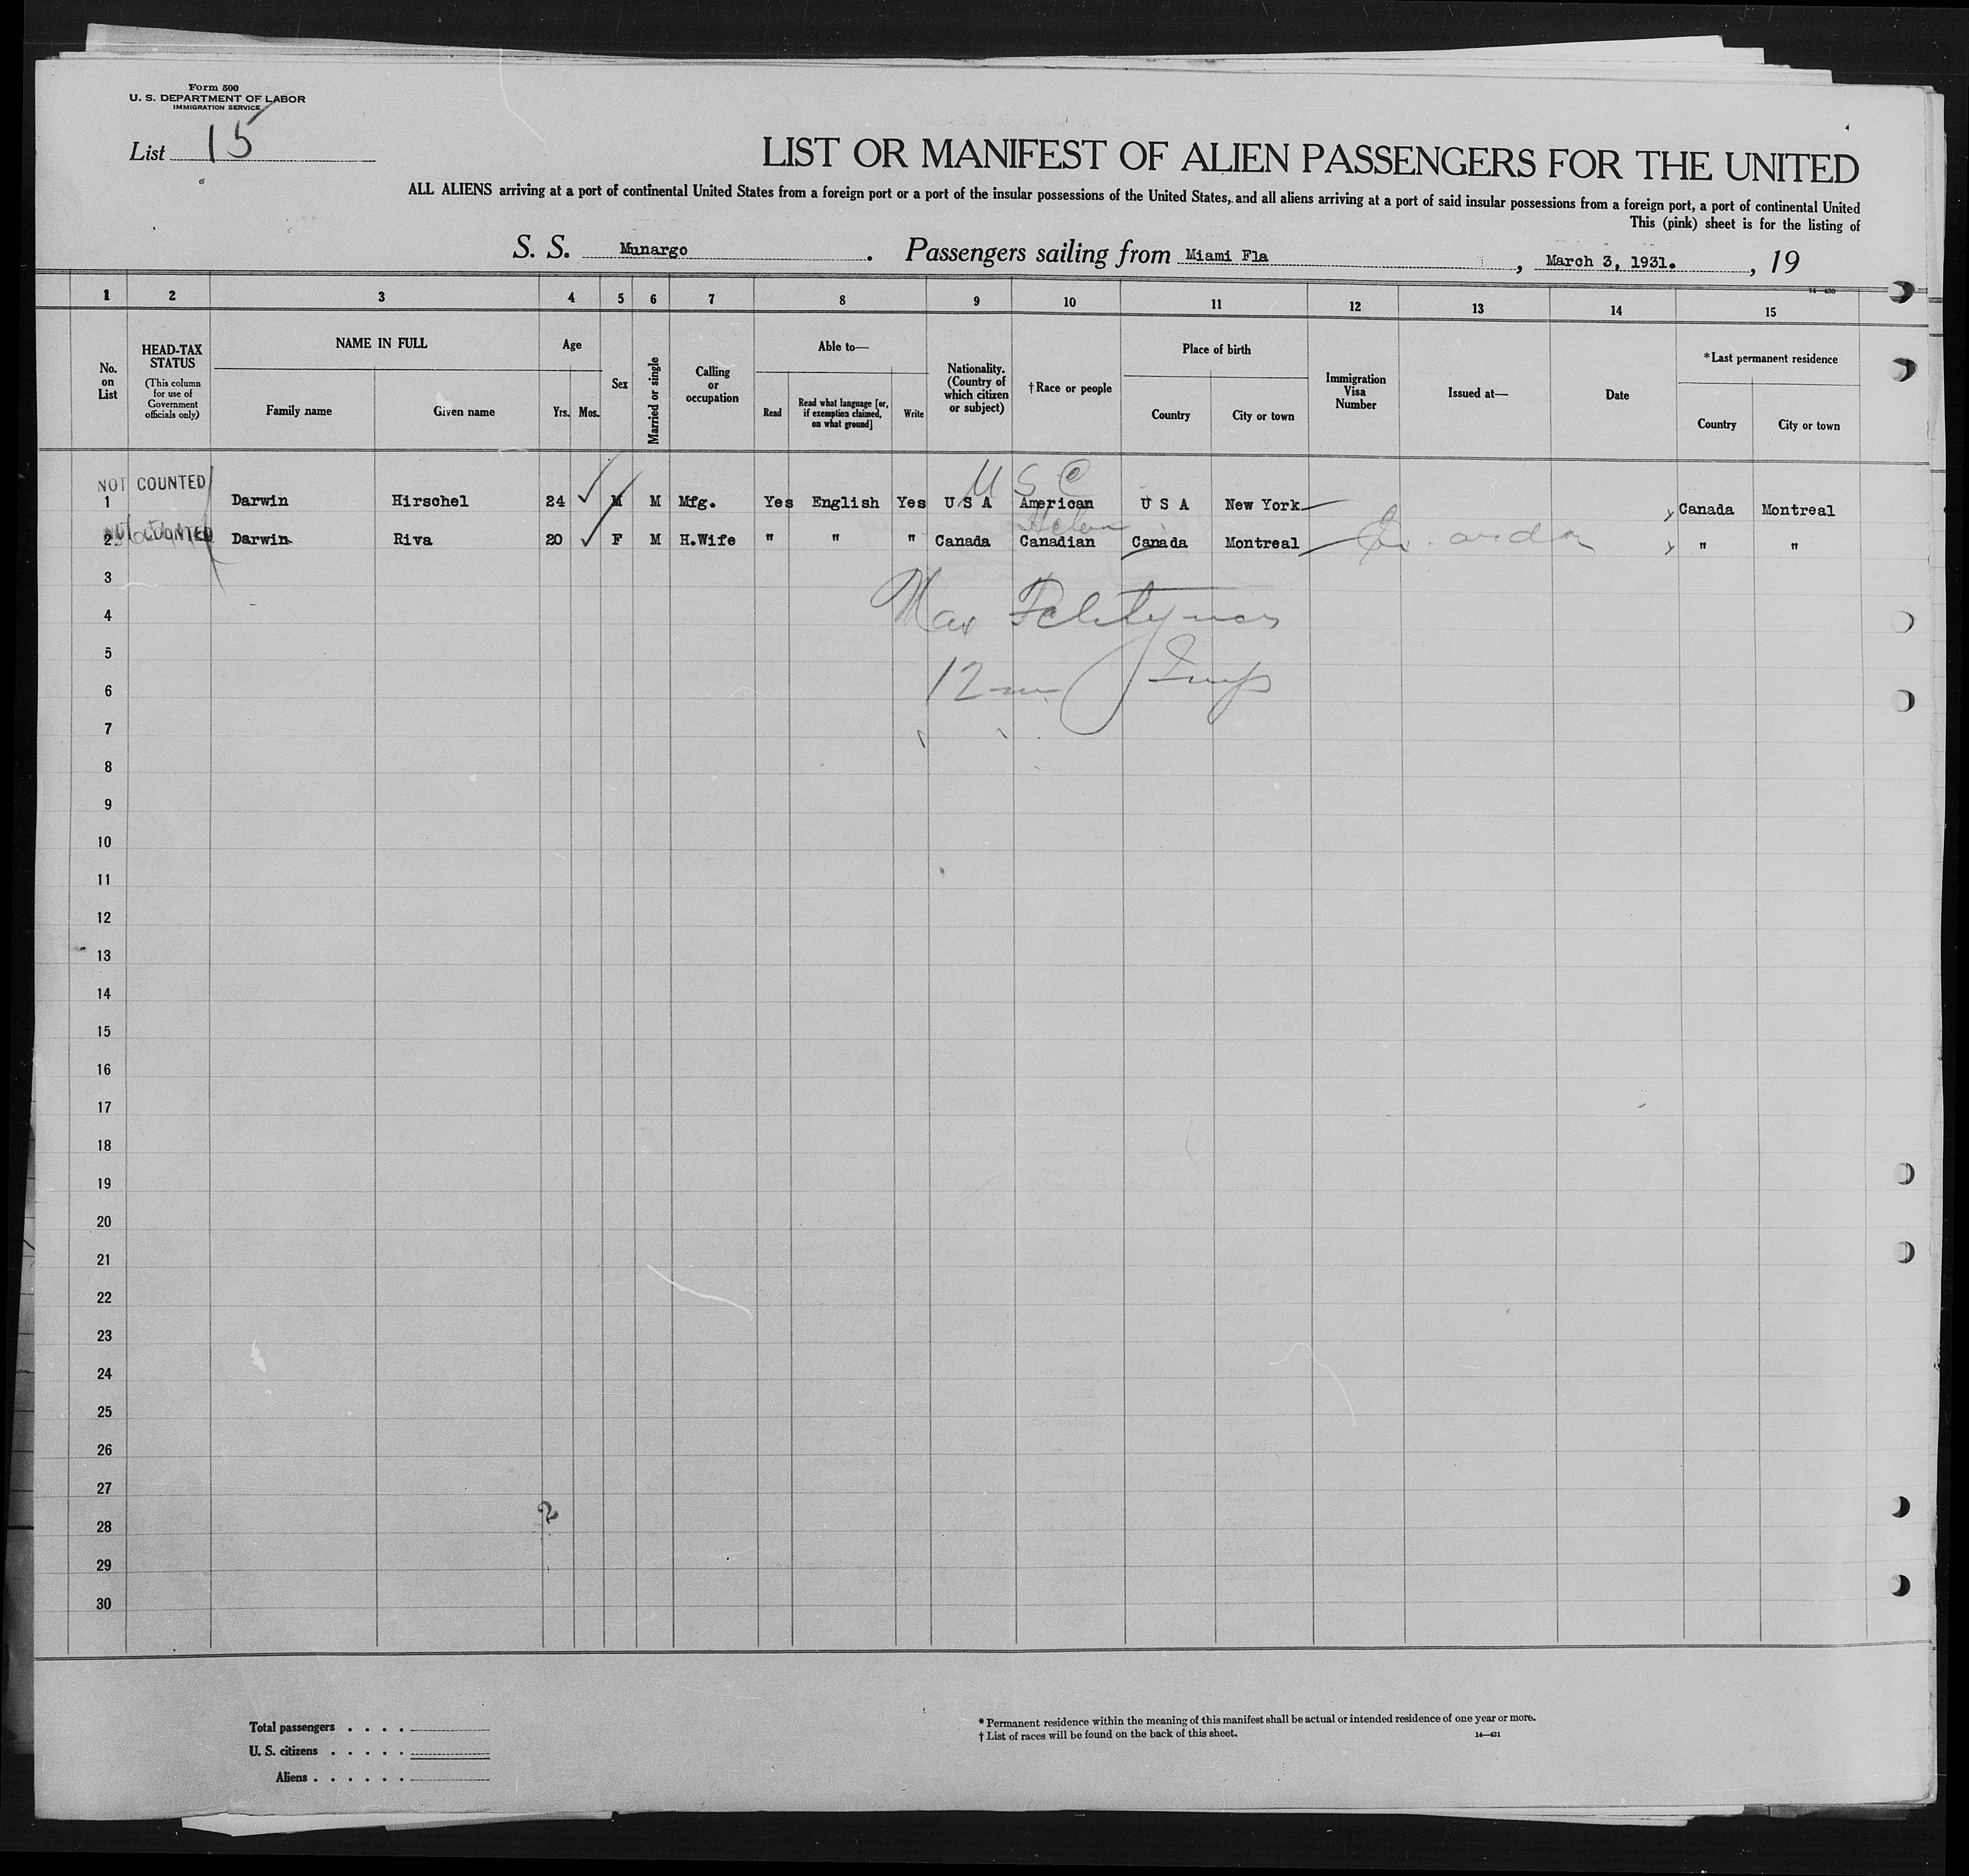 Form 500
U. S. DEPARTMENT OF LABOR
IMMIGRATION SERVICE
List 15
LIST OR MANIFEST OF ALIEN PASSENGERS FOR THE UNITED
ALL ALIENS arriving at a port of continental United States from a foreign port or a port of the insular possessions of the United States, and all aliens arriving at a port of said insular possessions from a foreign port, a port of continental United
This (pink) sheet is for the listing of
S. S. Munargo. Passengers sailing from Miami Fla, March 3, 1931., 19
14—430
1 2 3 4 5 6 7 8 9 10 11 12 13 14 15
No. on List
HEAD-TAX STATUS
(This column for use of Government officials only)
NAME IN FULL
Family name Given name
Age
Yrs. Mos.
Sex
Married or single
Calling or occupation
Able to—
Read
Read what language [or, if exemption claimed, on what ground]
Write
Nationality. (Country of which citizen or subject)
† Race or people
Place of birth
Country City or town
Immigration Visa Number
Issued at—
Date
*Last permanent residence
Country City or town
NOT COUNTED
U S C
1 Darwin Hirschel 24 M M Mfg. Yes English Yes U S A American U S A New York Canada Montreal
NOT COUNTED
2 Darwin Riva 20 F M H.Wife " " " Canada Canadian Canada Montreal " "
3
4 Max
5
6 12
7
8
9
10
11
12
13
14
15
16
17
18
19
20
21
22
23
24
25
26
27
2
28
29
30
Total passengers . . . .
U. S. citizens . . . . .
Aliens . . . . . .
* Permanent residence within the meaning of this manifest shall be actual or intended residence of one year or more.
† List of races will be found on the back of this sheet.
14—431